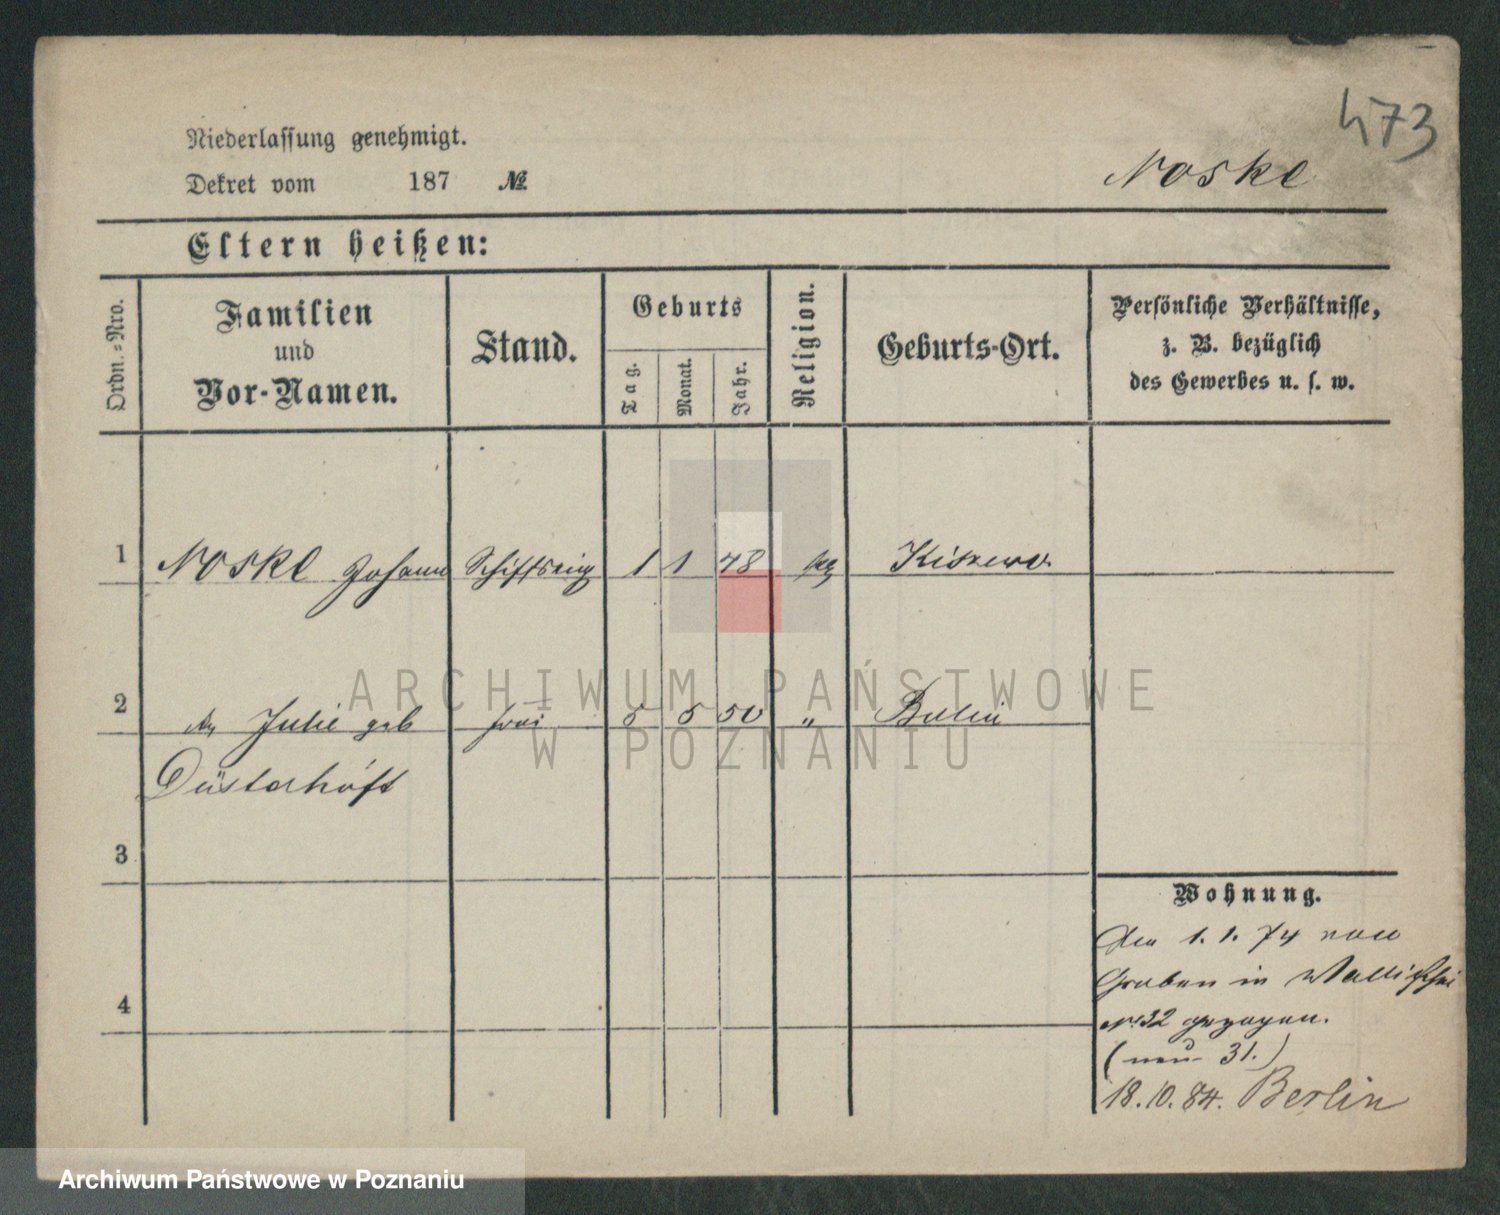 473
Niederlassung genehmigt.
Dekret vom 187 №
Noske
Eltern heißen:
Ordn.-Nro.
Familien
und
Vor-Namen.
Stand.
Geburts
Tag.
Monat.
Jahr.
Religion.
Geburts-Ort.
Persönliche Verhältnisse,
z. B. bezüglich
des Gewerbes u. s. w.
1 Noske Johann 1 1 48
2 Julie geb 5 5 50 " Berlin
Düsterhöft
3
4
Wohnung.
1. 1. 74 von
Graben in Wallischei
№ 32 gezogen.
(neu 31.)
18. 10. 84. Berlin
ARCHIWUM PAŃSTWOWE
W POZNANIU
Archiwum Państwowe w Poznaniu